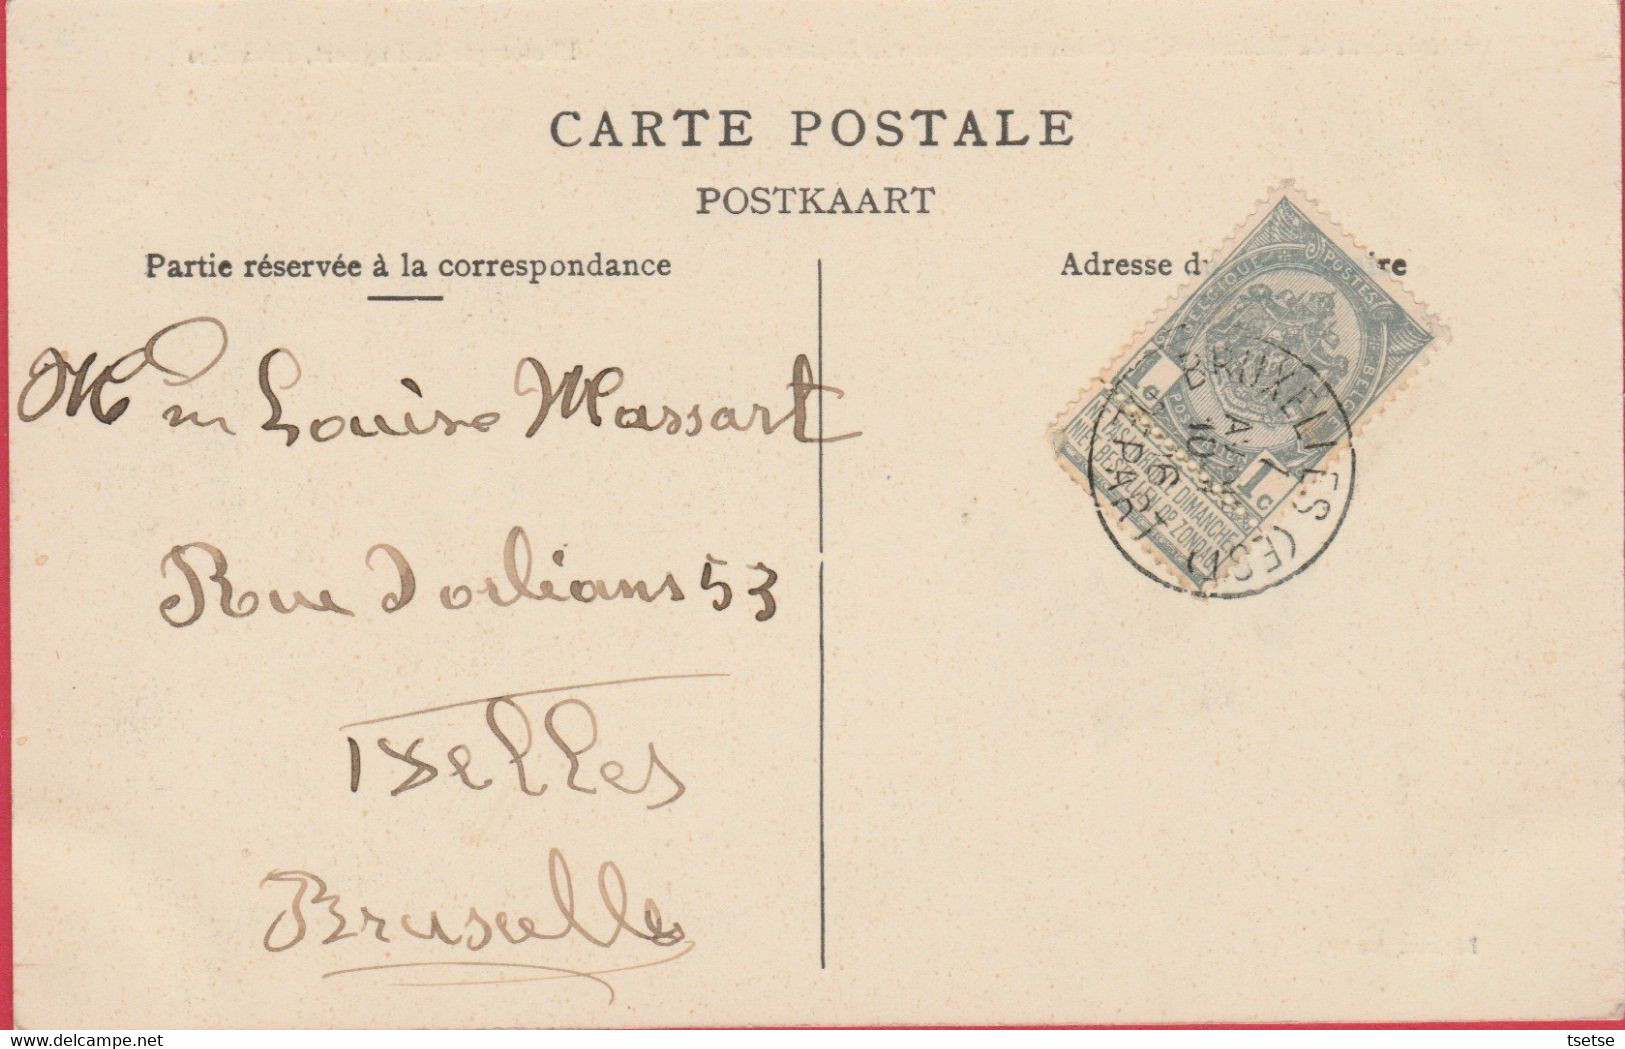 CARTE POSTALE
POSTKAART
Partie réservée à la correspondance
Adresse d
ire
Mᵉ Louise Massart
Rue Dorlians 53
Ixelles
Bruxelle
BELGIQUE
POSTES
1c
1c
NE PAS LIVRER LE DIMANCHE
NIET BESTELLEN OP ZONDAG
BRUXELLES (EST)
DÉPART
tsetse